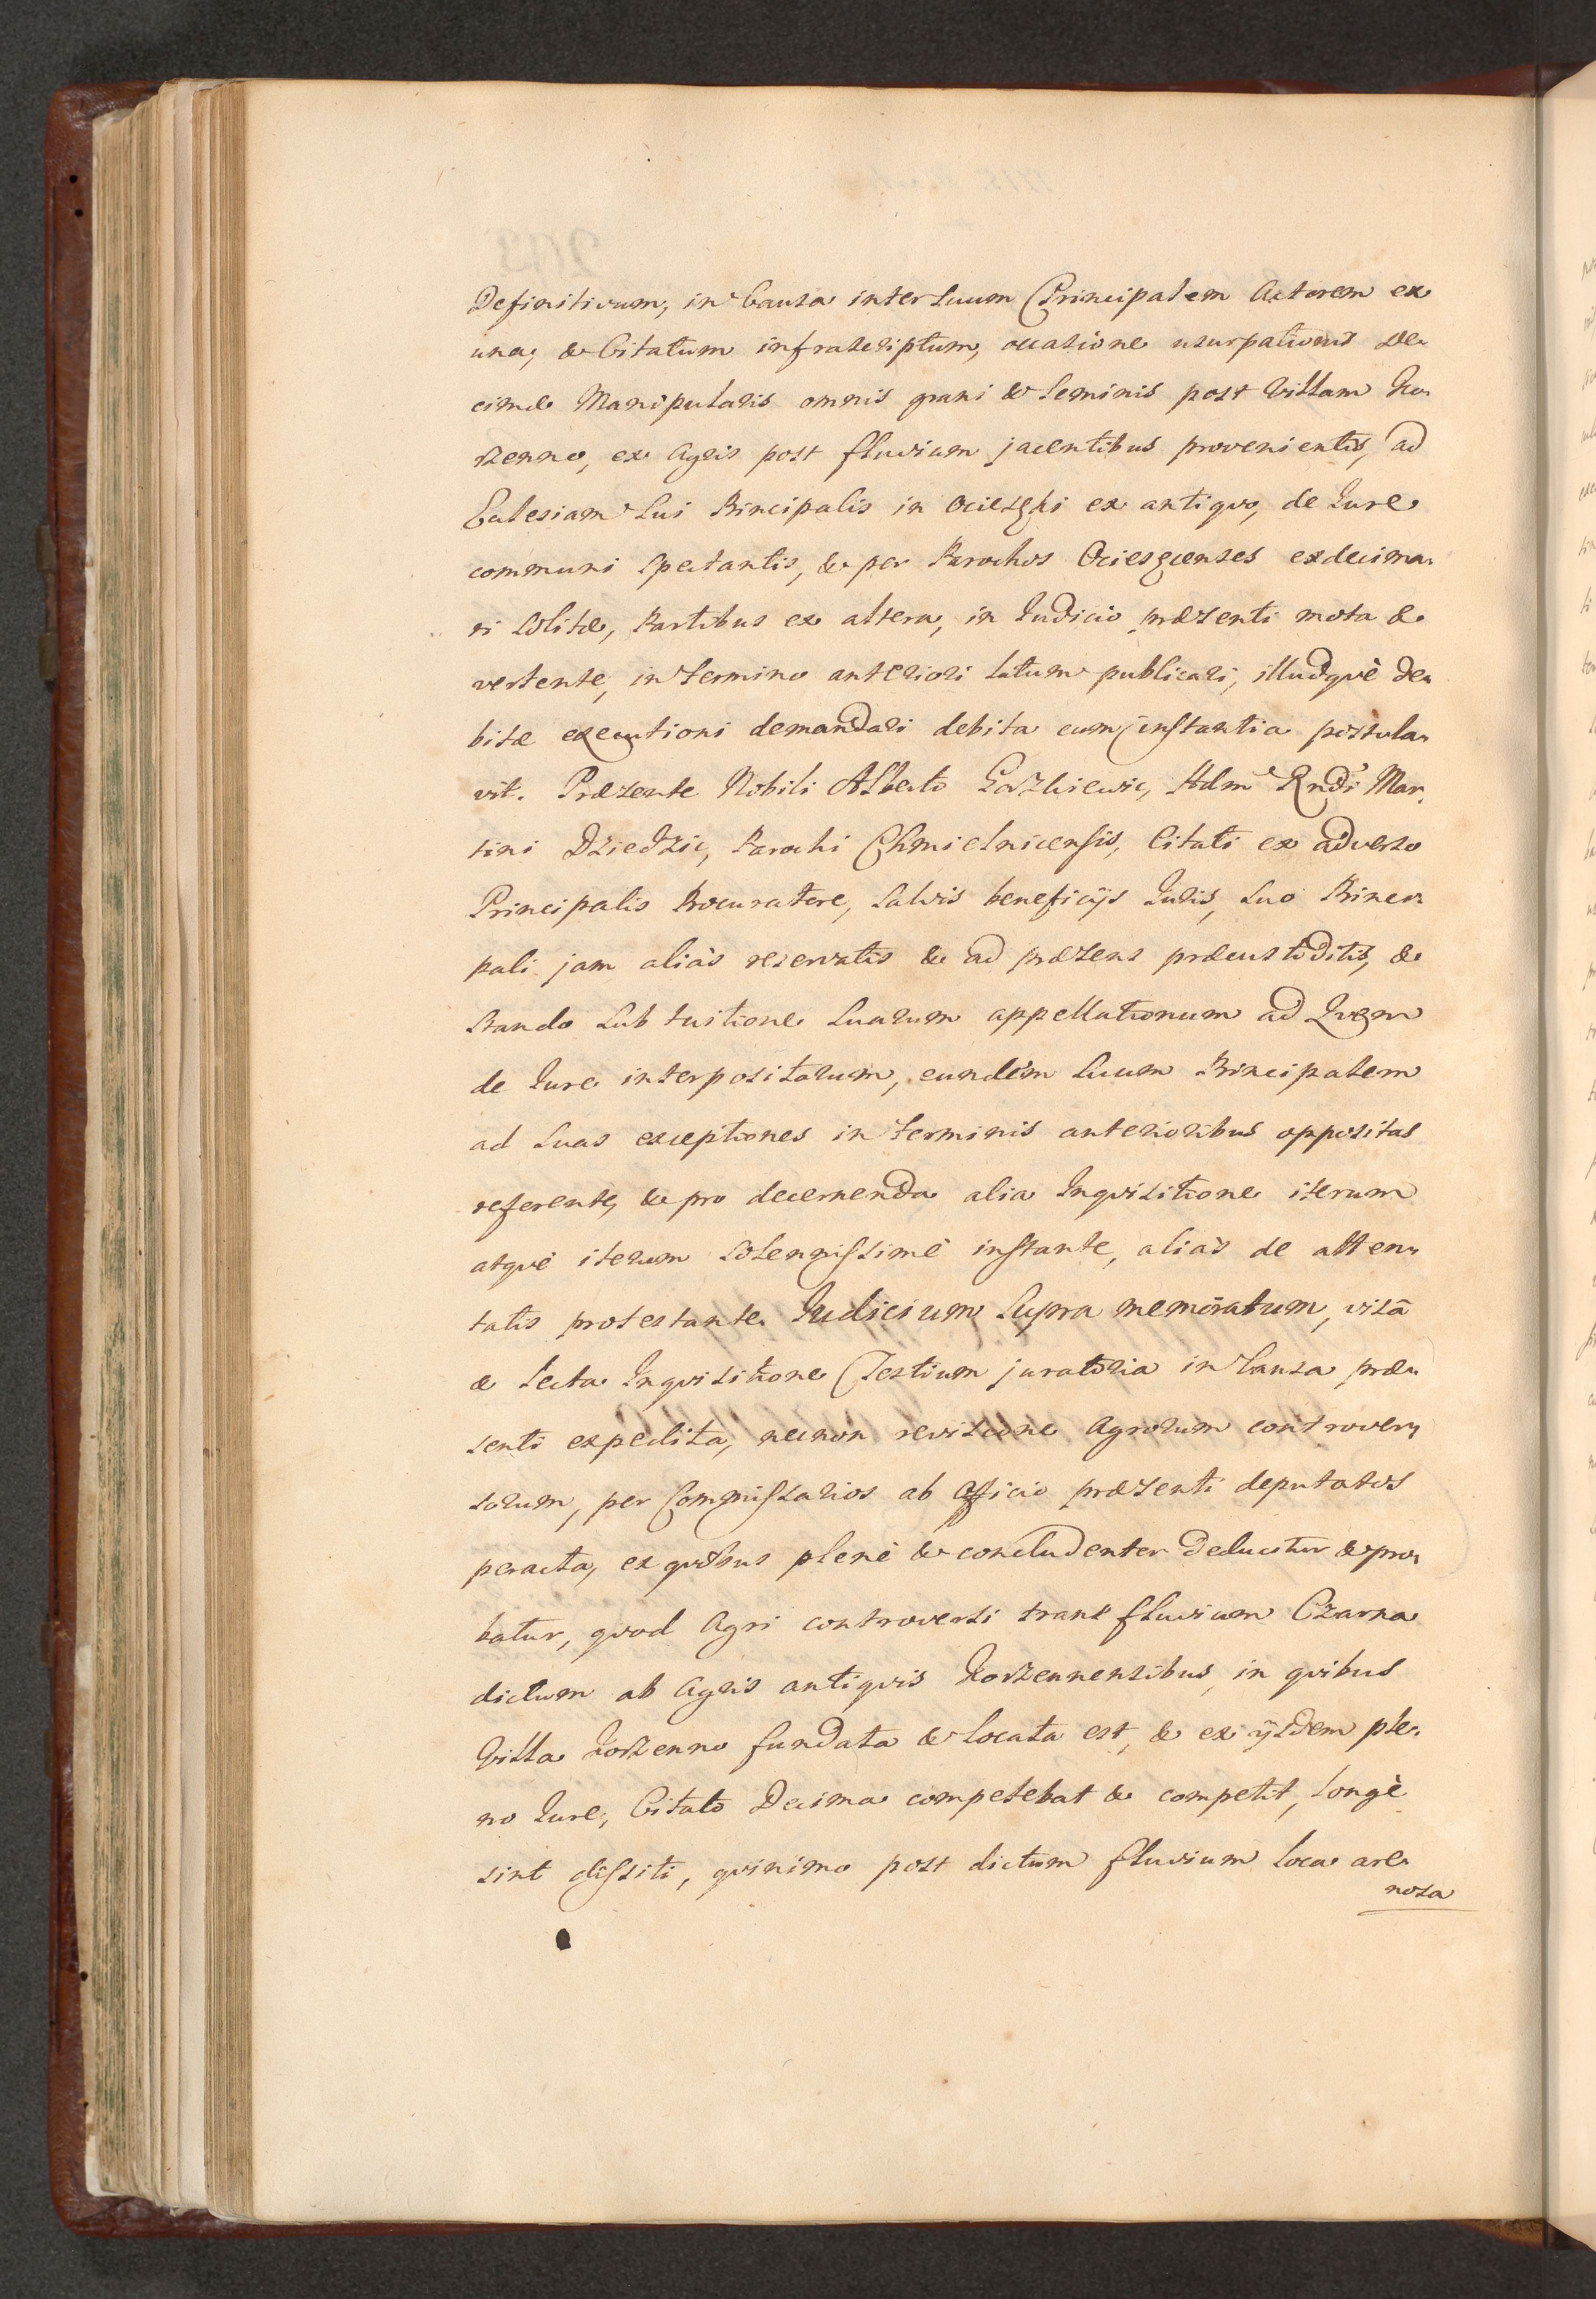 Definitivum, in Causa inter suum Principalem Actorem ex
una, & Citatum infrascriptum, occasione usurpationis De„
cimæ Manipularis omnis grani & seminis post Villam Ko„
rzenno, ex Agris post fluvium jacentibus provenientis, ad
Eclesiam sui Principalis in Ociesęki ex antiquo, de Iure
communi spectantis, & per Parochos Ociesęcenses exdecima„
ri solitæ, Partibus ex altera, in Iudicio præsenti mota &
vertente, in termino anteriori latum publicari, illudquè de„
bitæ executioni demandari debita cum instantia postula„
vit. Præsente Nobili Alberto Gorzkiewic, Adm Rndi Mar„
tini Dziedzic, Parochi Chmielnicensis, Citati ex adverso
Principalis Procuratore, salvis beneficijs Iuris, suo Princi„
pali jam aliàs reservatis & ad præsens præcustoditis, &
stando sub tuitione suarum appellationum ad Quem
de Iure interpositarum, eundèm suum Principalem
ad suas exceptiones in terminis anterioribus oppositas
referente, & pro decernenda alia Inquisitione iterum
atquè iterum solennissimè instante, aliàs de atten„
tatis protestante. Iudicium supra memoratum, visâ
& lecta Inquisitione Testium juratoria in Causa præ„
senti expedita, necnon revisione Agrorum controver„
sorum, per Commissarios ab Officio præsenti deputatos
peracta, ex quibus plenè & concludenter deducitur & pro„
batur, quod Agri controversi trans fluvium Czarna
dictum ab Agris antiquis Korzennensibus, in quibus
Villa Korzenno fundata & locata est, & ex ijsdem ple„
no Iure, Citato Decima competebat & competit, longè
sint dissiti, quinimo post dictum fluvium loca are„
nosa